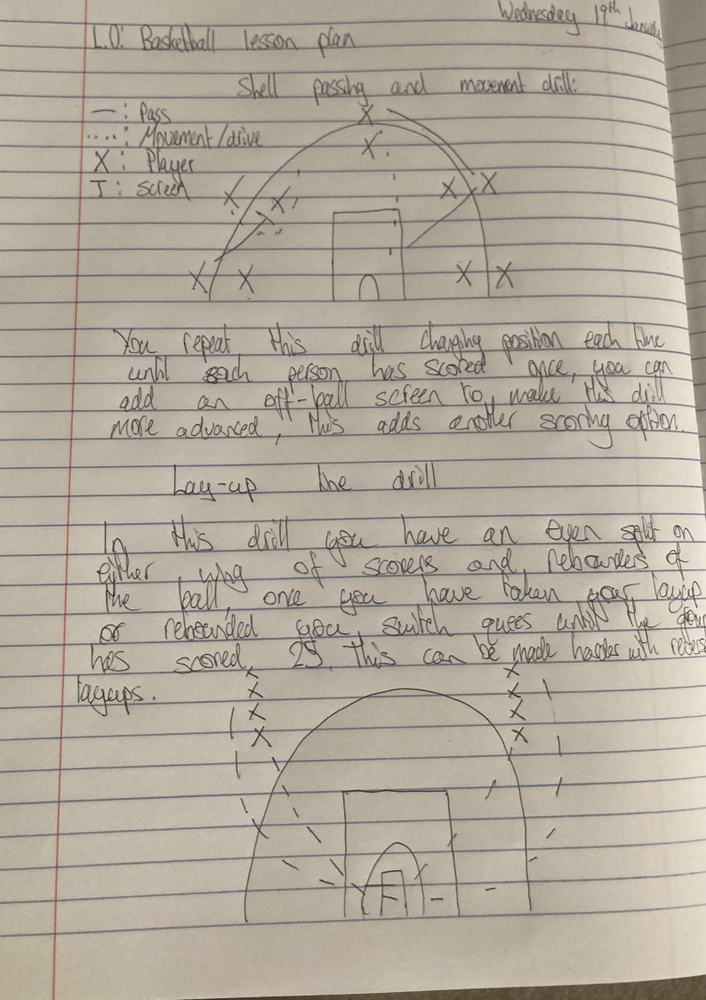 Wednesday 19th January
L.O: Basketball lesson plan
Shell passing and movement drill:
— : Pass
.... : Movement/drive
X : Player
T : Screen
You repeat this drill changing position each time
until each person has scored once, you can
add an off-ball screen to make this drill
more advanced, this adds another scoring option.
Lay-up line drill
In this drill you have an even split on
either wing of scorers and rebounders of
the ball, once you have taken your layup
or rebounded you switch quees until the group
has scored 25. This can be made harder with reverse
layups.